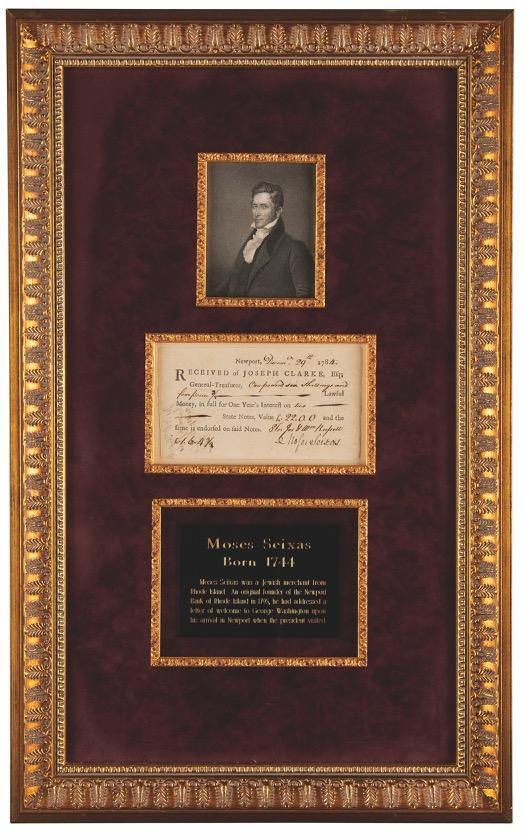 Newport, Decem.r 29th 1784.
RECEIVED of JOSEPH CLARKE, Esq;
General-Treasurer, One pound six Shillings and
four pence 3/4 Lawful
Money, in full for One Year's Interest on two
State Notes, Value £ 22.0.0 and the
same is endorsed on said Notes.
£1.6.4 3/4 Moses Seixas
Moses Seixas
Born 1744
Moses Seixas was a Jewish merchant from
Rhode Island. An original founder of the Newport
Bank of Rhode Island in 1795, he had addressed a
letter of welcome to George Washington upon
his arrival in Newport when the president visited.